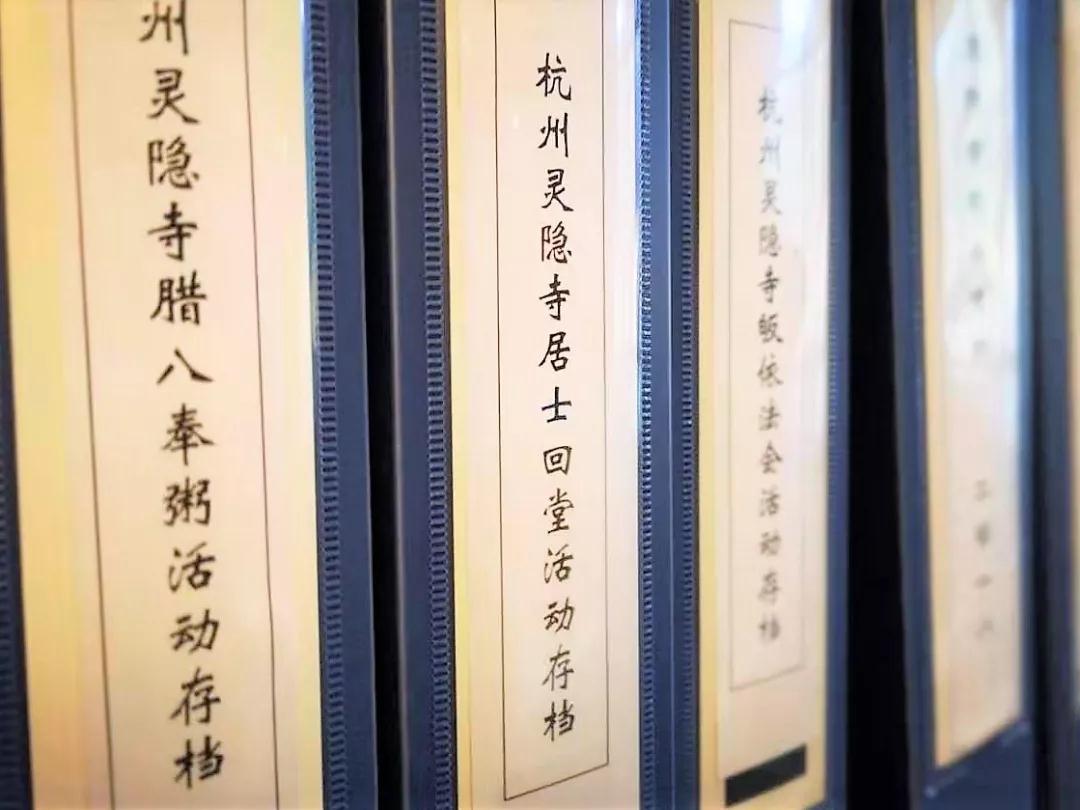 州灵隐寺腊八奉粥活动存档
杭州灵隐寺居士回堂活动存档
杭州灵隐寺皈依法会活动存档